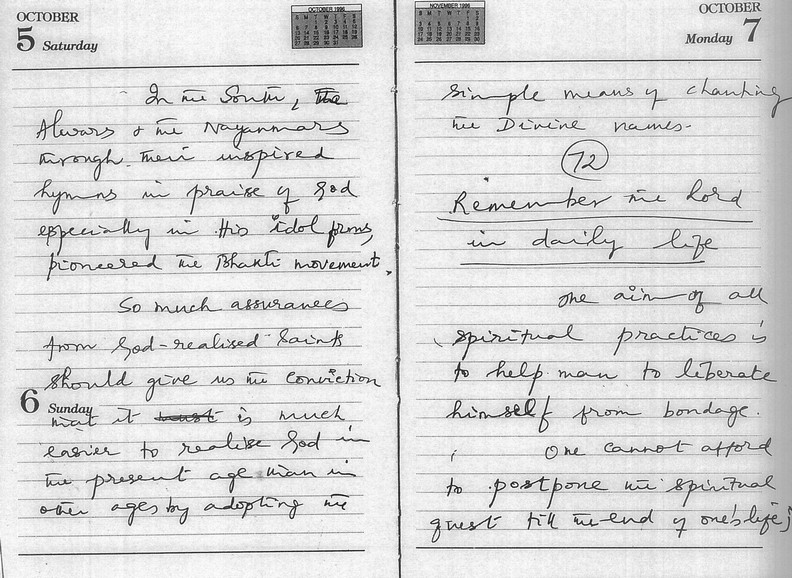 OCTOBER
5 Saturday
OCTOBER 1996
In the South, the
Alwars & the Nayanmars
through their inspired
hymns in praise of God
especially in His idol forms,
pioneered the Bhakti movement.
So much assurances
from God-realised Saints
should give us the conviction
6 Sunday
that it is much
easier to realise God in
the present age than in
other ages by adopting the
NOVEMBER 1996
OCTOBER
Monday 7
simple means of chanting
the Divine names.
72
Remember the Lord
in daily life
The aim of all
spiritual practices is
to help man to liberate
himself from bondage.
One cannot afford
to postpone the spiritual
quest till the end of one's life;